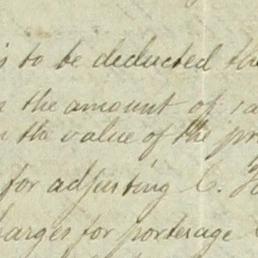 to be deducted the
the amount of
the value of the
for adjusting C.
for porterage